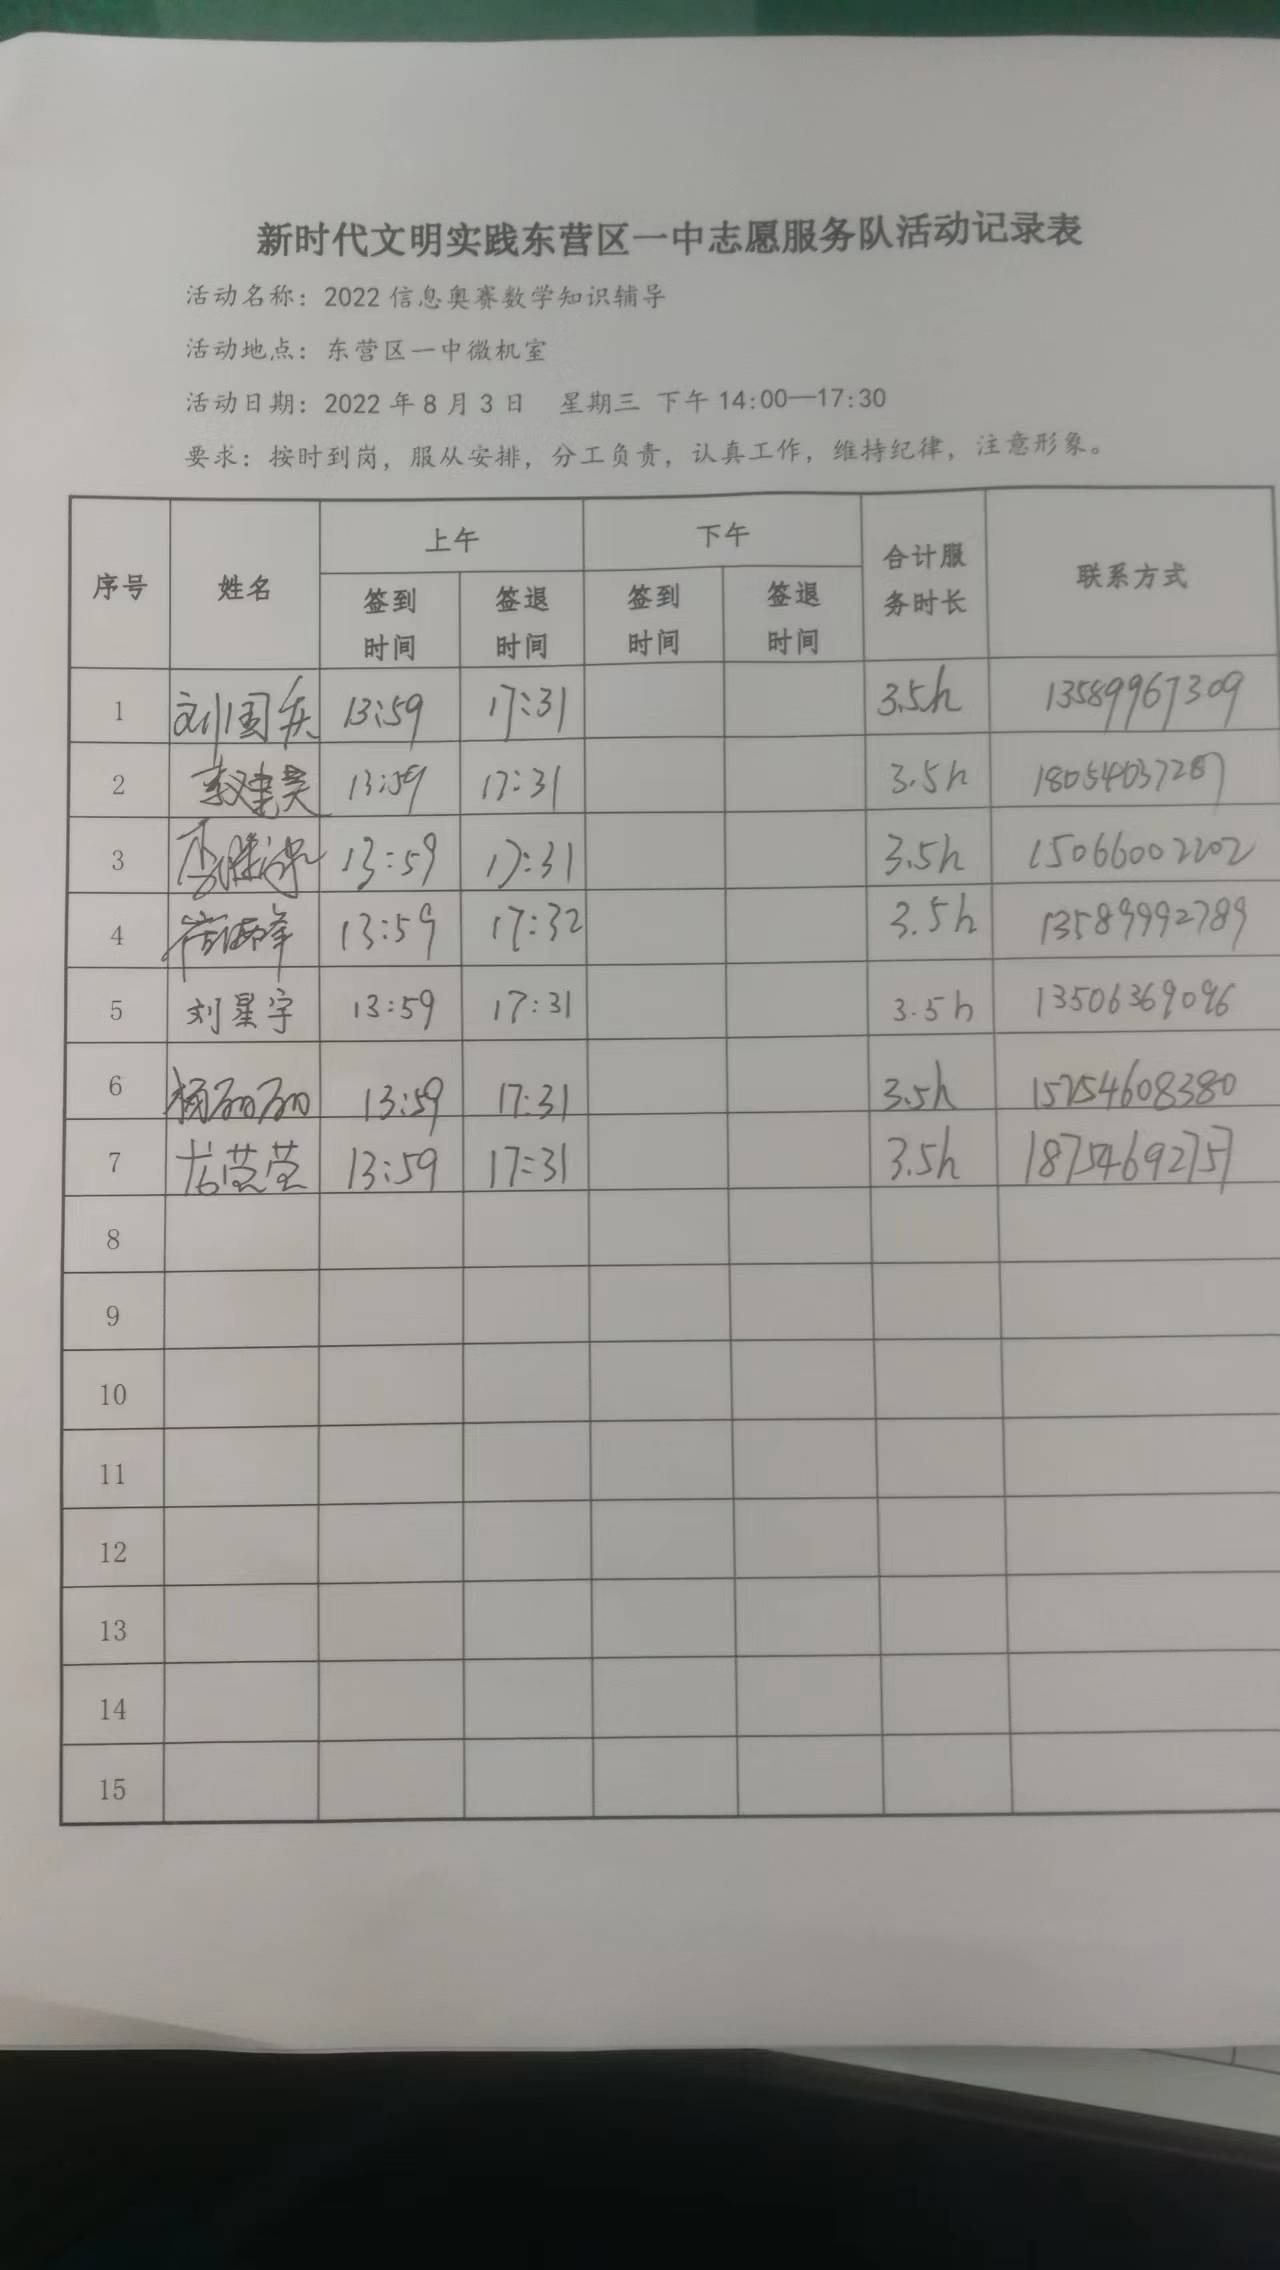 新时代文明实践东营区一中志愿服务队活动记录表
活动名称：2022 信息奥赛数学知识辅导
活动地点：东营区一中微机室
活动日期：2022 年 8 月 3 日 星期三 下午 14:00—17:30
要求：按时到岗，服从安排，分工负责，认真工作，维持纪律，注意形象。
序号 姓名 上午 下午 合计服务时长 联系方式
签到时间 签退时间 签到时间 签退时间
1 刘国庆 13:59 17:31 3.5h 13589967309
2 13:59 17:31 3.5h 18054037287
3 13:59 17:31 3.5h 15066002202
4 13:59 17:32 3.5h 13589992789
5 刘星宇 13:59 17:31 3.5h 13506369096
6 杨丽丽 13:59 17:31 3.5h 15254608380
7 尤莹莹 13:59 17:31 3.5h 18754692757
8
9
10
11
12
13
14
15